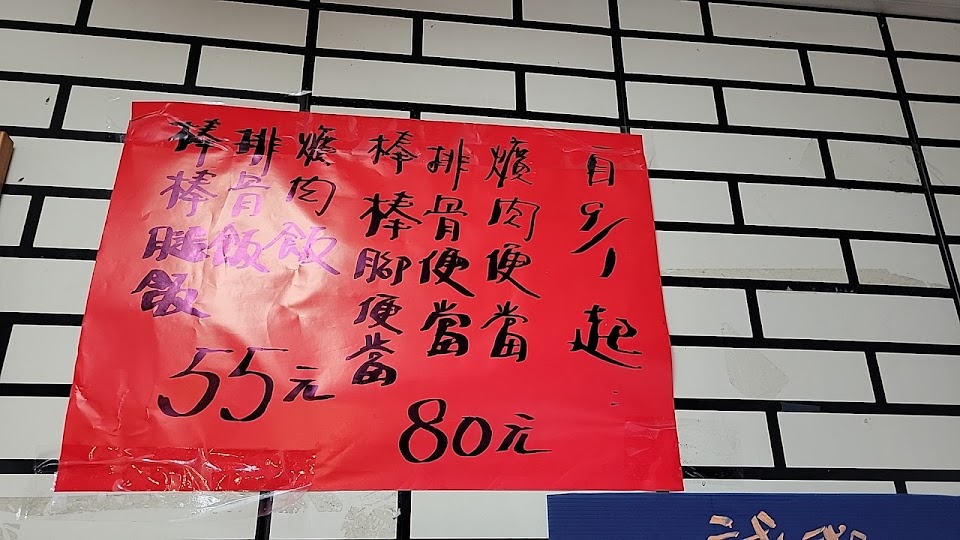 自9/1起:
爌肉便當
排骨便當
棒棒腳便當
80元
爌肉飯
排骨飯
棒棒腿飯
55元